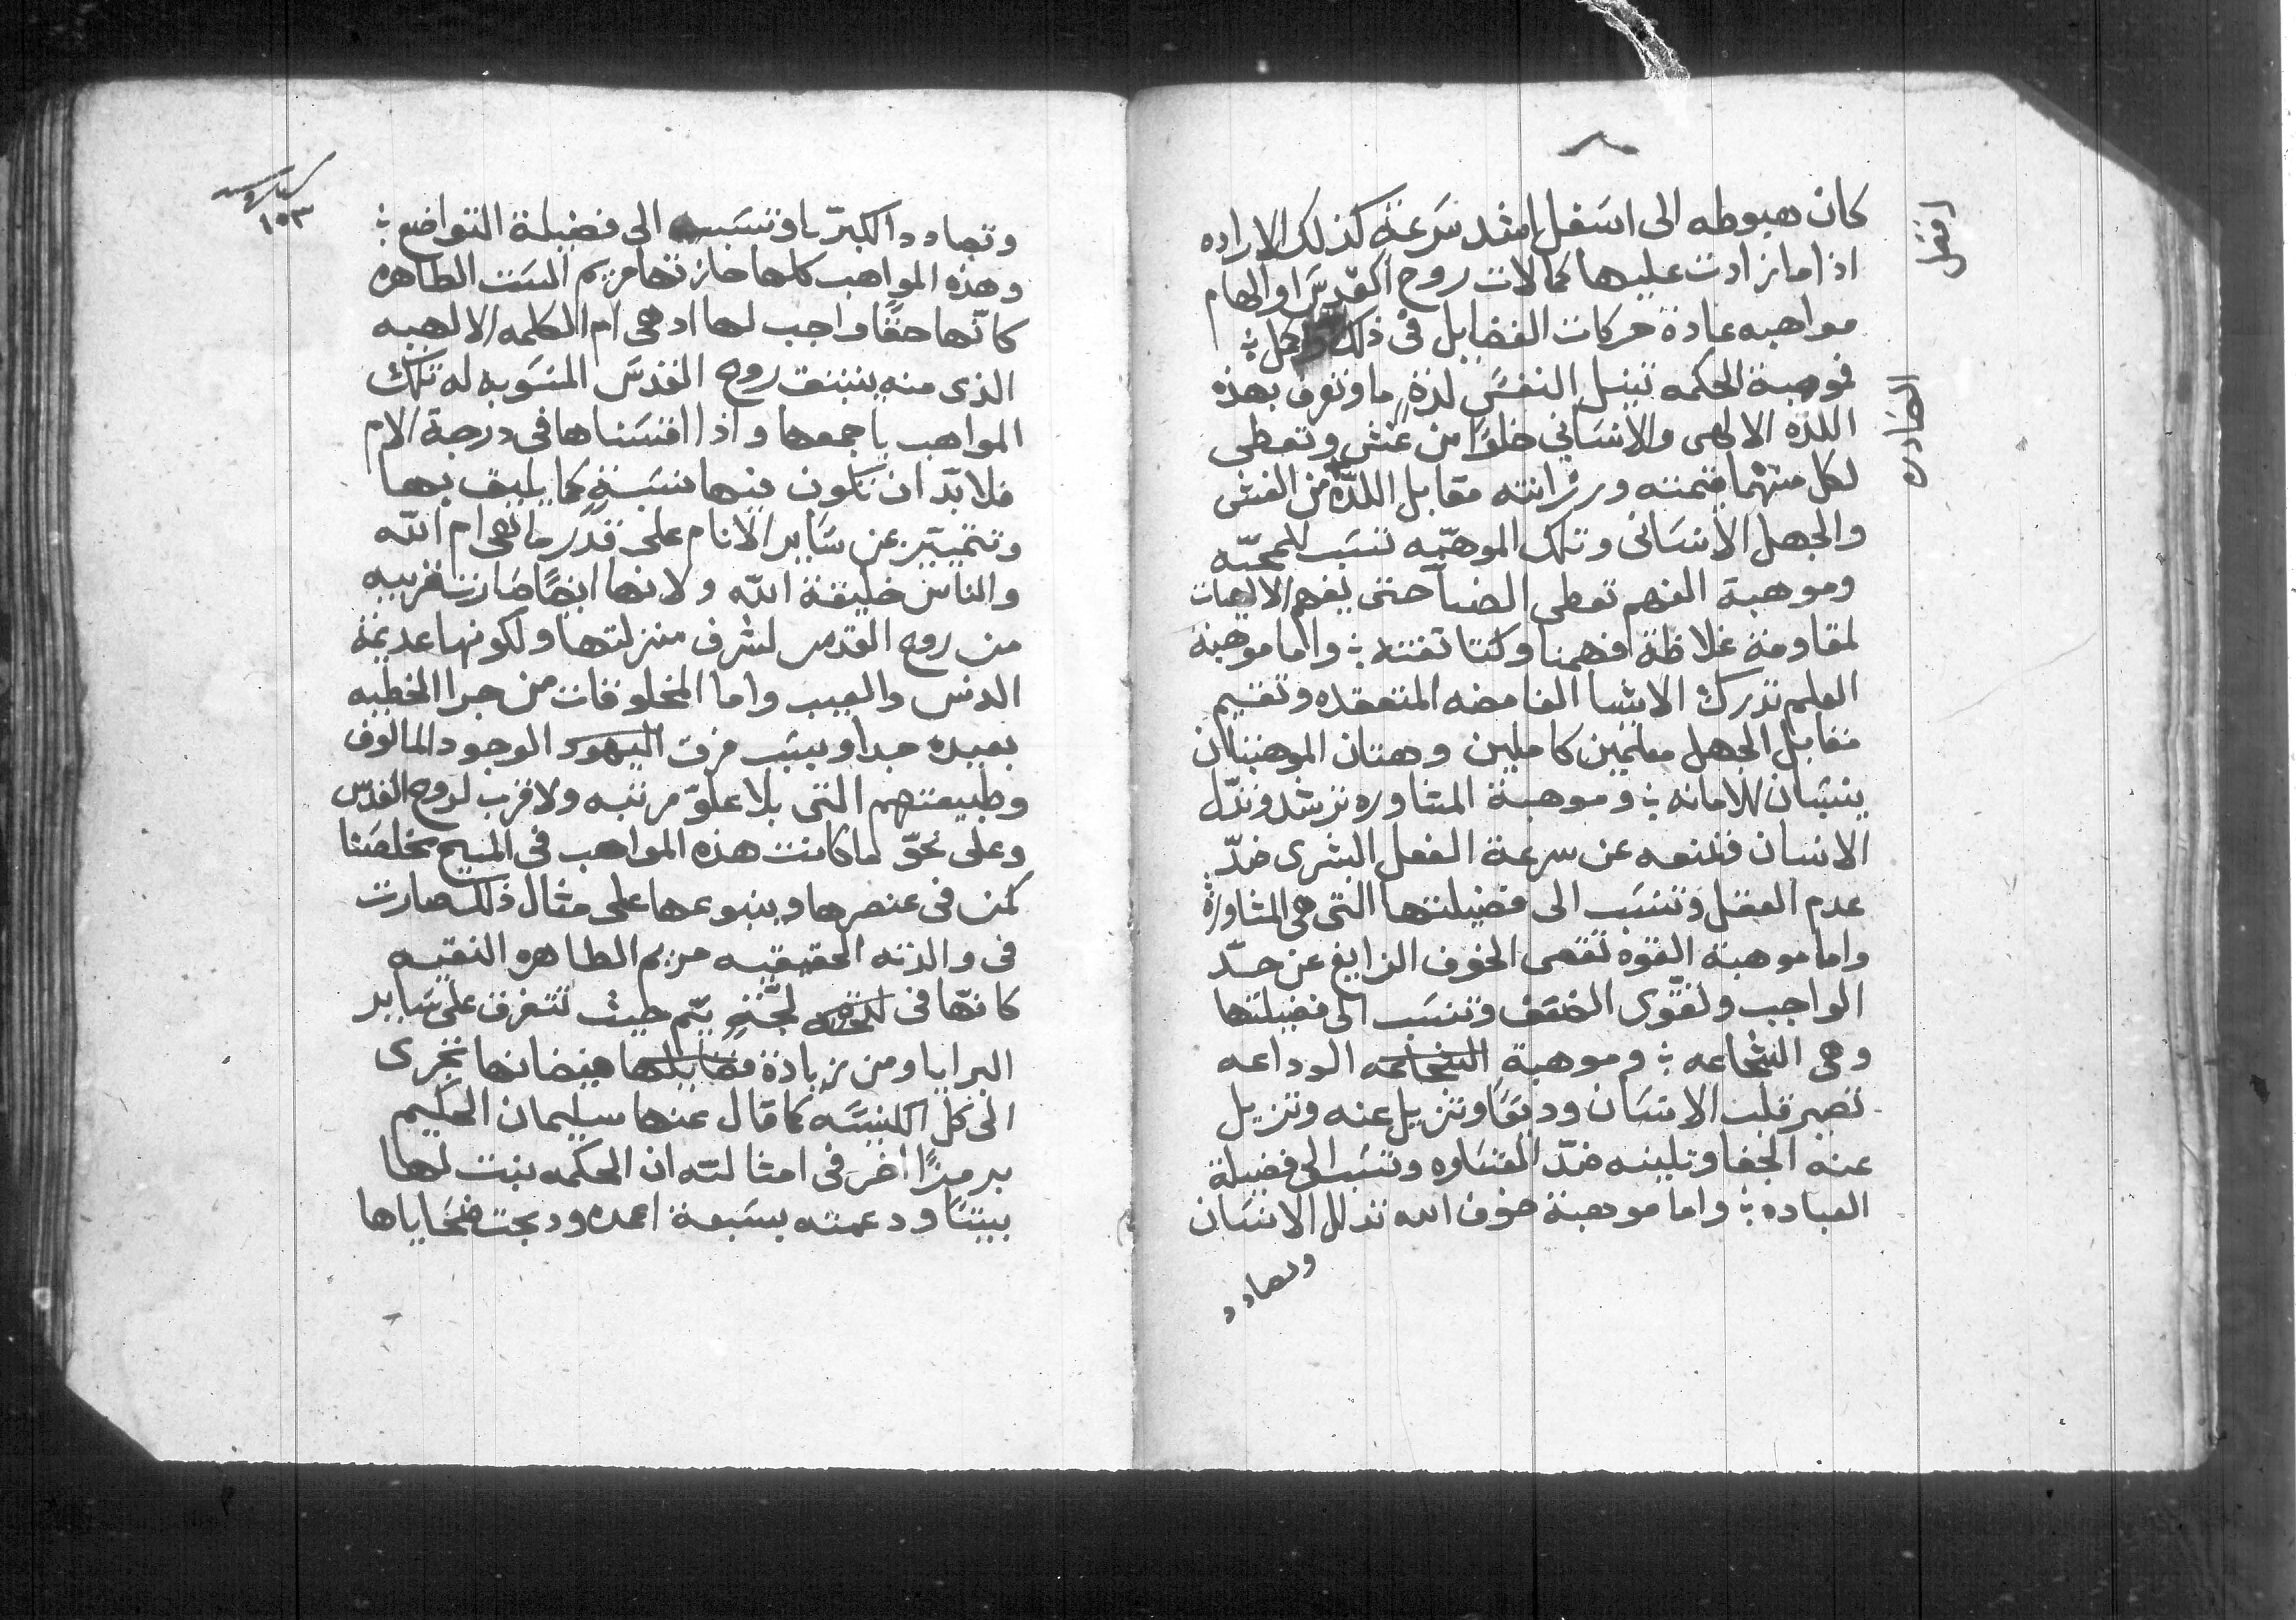 كان هبوطه الى اسفل اشد سرعة كذلك الاراده
اثقل
اذا ما زادت عليها كمالات روح القدس او الهام
مواهبه عادة حركات الفضايل فى ذلك
فموهبة الحكمه تنيل النفس لذة ما وتعرف بهذه
اللذه الالهى والانسانى خلوًا من غش وتعطى
لكل منهما قيمته ورزانته مقابل اللذّه من الغش
والجهل الانسانى وتلك الموهبه تنسب للمحبّه
وموهبة الفهم تعطى الضيآ حتى يفهم الالهيات
لمقاومة غلاظة افهمنا وكتاتفته ؛ واما موهبة
العلم تدرك الاشيا الغامضه المتعقده وتقيم
مقابل الجهل معلمين كاملين وهتان الموهبتان
ينسبان للامانه ؛ وموهبة المشاوره ترشد وتدّل
الانسان فتمنعه عن سرعة الفعل البشرى ضدّ
عدم العقل وتنسب الى فضيلتها التى هى المشاورة
واما موهبة القوه تقصى الخوف الزايغ عن حدّ
الواجب وتقوى الضعف وتنسب الى فضيلتها
وهى الشجاعه ؛ وموهبة الشجاعه الوداعه
تصير قلب الانسان وديعًا وتزيل عنه وتزيل
عنه الجفا وتلينه ضدّ القساوه وتنسب الى فضيلة
العباده ؛ واما موهبة خوف الله تذلل الانسان
وتصادد
١٥٣
وتصادد الكبريا وتنسب الى فضيلة التواضع ؛
وهذه المواهب كلها حازتها مريم الست الطاهره
كانّها حقًا واجب لها اد هى ام الكلمه الالهيه
الذى منه ينبثق روح القدس المنسوبه له تلك
المواهب باجمعها واذا اقتسناها فى درجة الام
فلا بدّ ان تكون فيها نسبة كما يليق بها
وتتميّز عن ساير الانام على قدر ما هى ام الله
والناس خليقة الله ولانها ايضًا صارت قريبه
من روح القدس لشرف منزلتها ولكونها عديمة
الدنس والعيب واما المخلوقات من جرا الخطيه
بعيده جدا وبسبب فرق اليهود الوجود المالوف
وطبيعتهم التى بلا علوّ مرتبه ولا قرب لروح القدس
وعلى نحوّ ما كانت هذه المواهب فى المسيح مخلصنا
كمن فى عنصرها وينبوعها على مثال ذلك صارت
فى والدته الحقيقيه مريم الطاهره النقيه
كانّها فى لجّة يمّ حيث تتفرق على ساير
البرايا ومن زيادة فضايلها فيضانها تجرى
الى كل الكنيسه كما قال عنها سليمان الحكيم
برمزًا اخر فى امثالته ان الحكمه بنت لها
بيتًا ودعمته بسبعة اعمده ودبحت ضحاياها